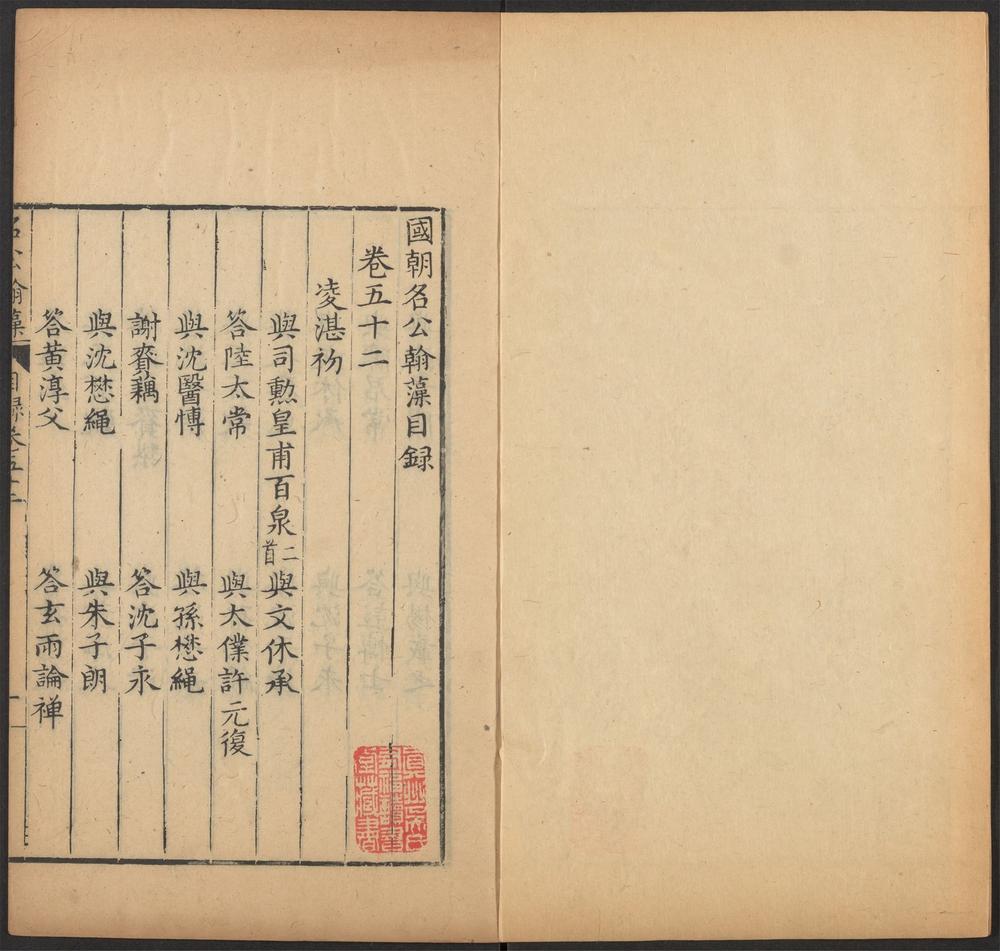 國朝名公翰藻目録
卷五十二
凌湛初
與司勲皇甫百泉二首 與文休承
答陸太常 與太僕許元復
與沈醫慱 與孫懋繩
謝賚藕 答沈子永
與沈懋繩 與朱子朗
答黄淳父 答玄雨論禅
名公翰藻 目録卷五十二 一
真州吳氏
有福讀書
堂藏書